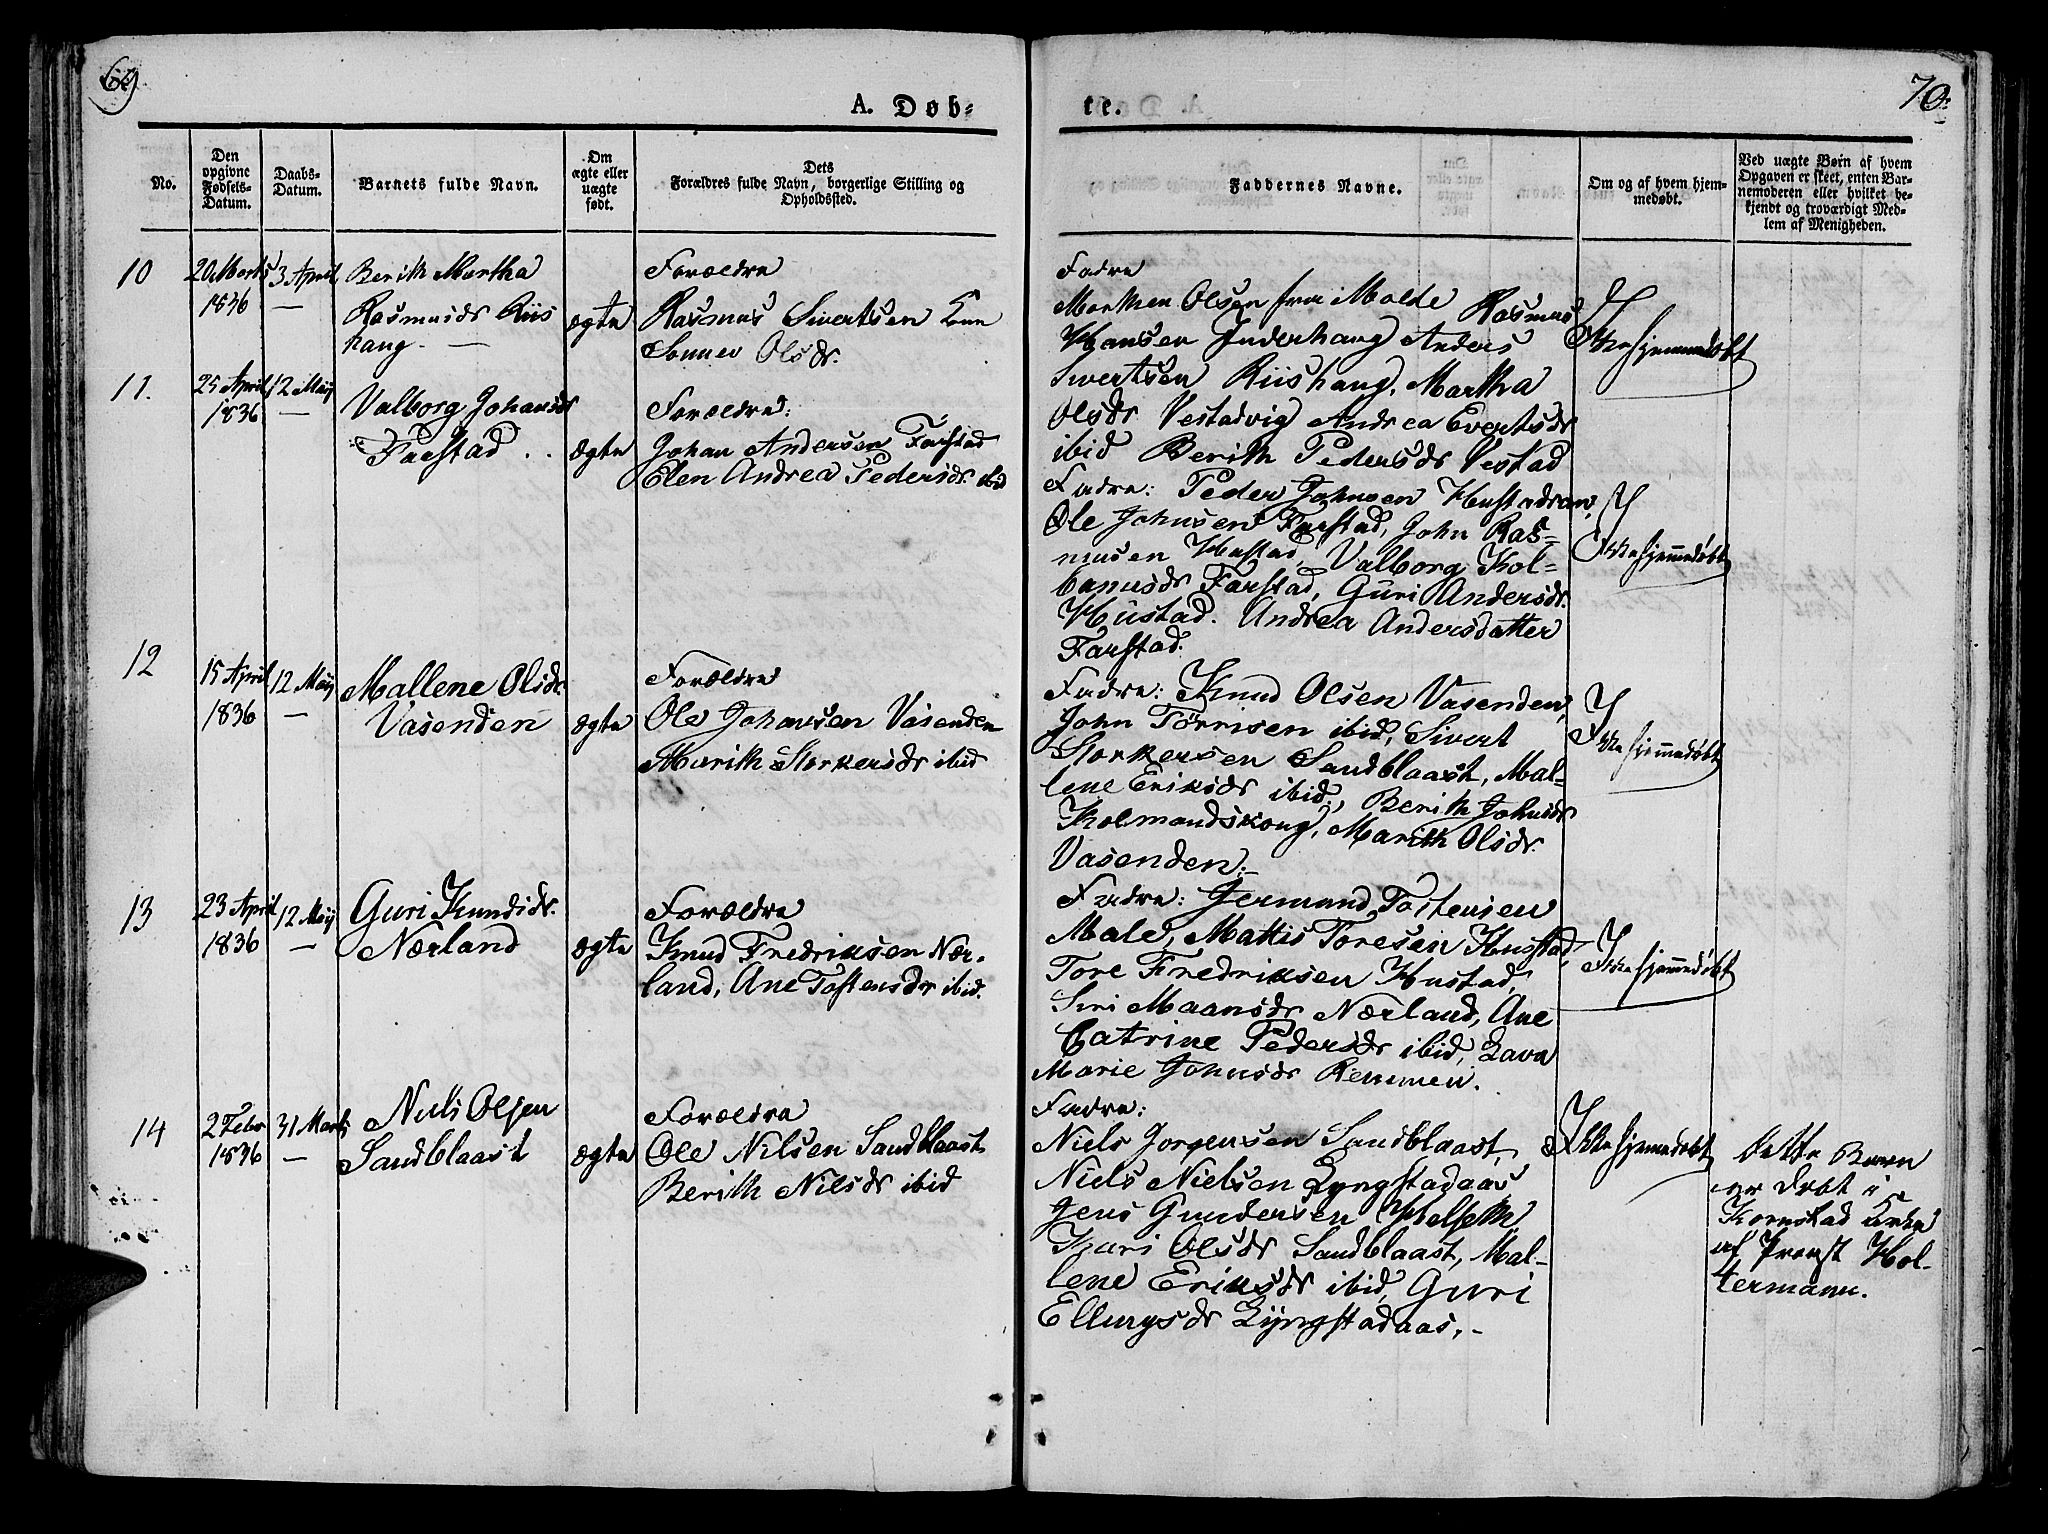 69
70
A. Døb-
te.
No.
Den opgivne Fødsels-Datum.
Daabs-Datum.
Barnets fulde Navn.
Om ægte eller uægte født.
Dets Forældres fulde Navn, borgerlige Stilling og Opholdssted.
Faddernes Navne.
Om og af hvem hjem-
medøbt.
Ved uægte Børn af hvem
Opgaven er skeet, enten Bar-
nemoderen eller hvilket be-
kjendt og troværdigt Med-
lem af Menigheden.
10
20 Marts
1836
3 April
—
Berith Martha
Rasmusdr Riis
haug. —
ægte
Forældre
Rasmus Sivertsen
Olsdr.
Fadre
Morthen Olsen fra Molde Rasmus
Hansen Inderhaug Anders
Sivertsen Riishaug, Martha
Olsdr Vestadvig Andrea Evertsdr
ibid Berith Pedersdr Vestad
Ikke hjemmedøbt
11.
25 April
1836
12 Maij
—
Valborg Johansdr
Farstad . .
ægte
Forældre:
Johan Andersen Farstad
Elen Andrea Pedersdr. ibid
Fadre: Peder Johnsen
Ole Johnsen Farstad, John Ras=
musen Hustad, Valborg Kol=
banusdr Farstad, Guri Andersdr.
Hustad. Andrea Andersdatter
Farstad.
Ikke hjemmedøbt
12
15 April
1836
12 Maij
—
Mallene Olsdr.
Vasenden
ægte
Forældre
Ole Johansen Vasenden
Marith Storkersdr ibid
Fadre: Knud Olsen Vasenden,
John Tørrisen ibid, Sivert
Storkersen Sandblaast, Mal-
lene Eriksdr ibid, Berith Johnsdr
Kolmandskoug, Marith Olsdr.
Vasenden.
Ikke hjemmedøbt
13
23 April
1836
12 Maij
—
Guri Knudsdr.
Nærland
ægte
Forældre
Knud Fredriksen Nær-
land, Ane Tostensdr ibid.
Fadre: Jermand Tostensen
Male, Mattis Toresen Hustad,
Tore Fredriksen Hustad,
Siri Maansdr Nærland, Ane
Catrine Pedersdr ibid,
Marie Johnsdr Remmen.
Ikke hjemmedøbt
14
2 Febr
1836
31 Marts
—
Niels Olsen
Sandblaast
ægte
Forældre
Ole Nilsen Sandblaast
Berith Nilsdr ibid
Fadre:
Niels Jørgensen Sandblaast,
Niels Nielsen Lyngstadaas
Jens Gundersen Helseth
Kari Olsdr Sandblaast, Mal-
lene Eriksdr ibid, Guri
Ellingsdr Lyngstadaas. -
Ikke hjemmedøbt
Dette Barn
er døbt i
Kornstad Kirke
af Provst Hol-
termann.